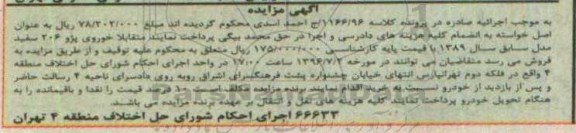 آگهی مزایده
به موجب اجرائیه صادره در پرونده کلاسه ۱۱۶۶/۹۶/ج احمد اسدی محکوم گردیده اند مبلغ ۷۸/۲۰۲/۰۰۰ ریال به عنوان
اصل خواسته به انضمام کلیه هزینه های دادرسی و اجرا در حق محمد بیگی پرداخت نمایند متقابلا خودروی پژو ۲۰۶ سفید
مدل سابق سال ۱۳۸۹ با قیمت پایه کارشناسی ۱۷۵/۰۰۰/۰۰۰ ریال متعلق به محکوم علیه توقیف و از طریق مزایده به
فروش می رسد متقاضیان می توانند در مورخه ۱۳۹۶/۷/۲ ساعت ۱۷:۰۰ در واحد اجرای احکام شورای حل اختلاف منطقه
۴ واقع در فلکه دوم تهرانپارس انتهای خیابان جشنواره پشت فرهنگسرای اشراق روبه روی دادسرای ناحیه ۴ رسالت حاضر
و پس از بازدید از خودرو نسبت به خرید اقدام نمایند برنده مزایده مکلف است ۱۰ درصد قیمت را نقدا و باقیمانده را به
هنگام تحویل خودرو پرداخت نمایند کلیه هزینه های نقل و انتقال بر عهده برنده مزایده می باشد.
۶۶۶۳۳ اجرای احکام شورای حل اختلاف منطقه ۴ تهران